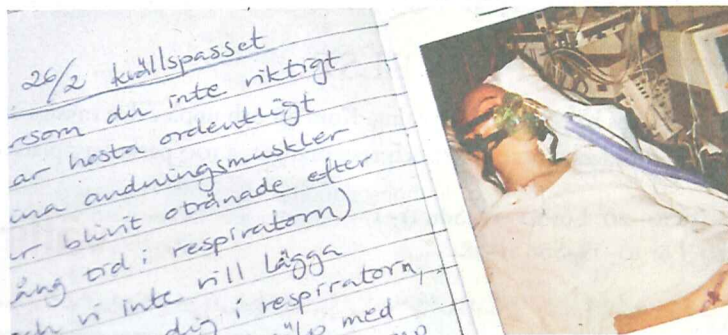 26/2 kvällspasset
rsom du inte riktigt
ar hosta ordentligt
ina andningsmuskler
r blivit otränade efter
ång tid i respiratorn)
ch vi inte vill lägga
dig i respiratorn,
med